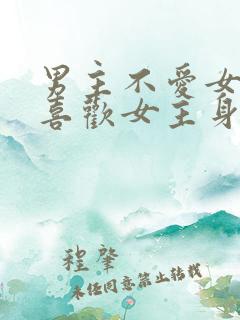 男主不愛女
喜歡女主身
程肇
未經同意禁止轉載